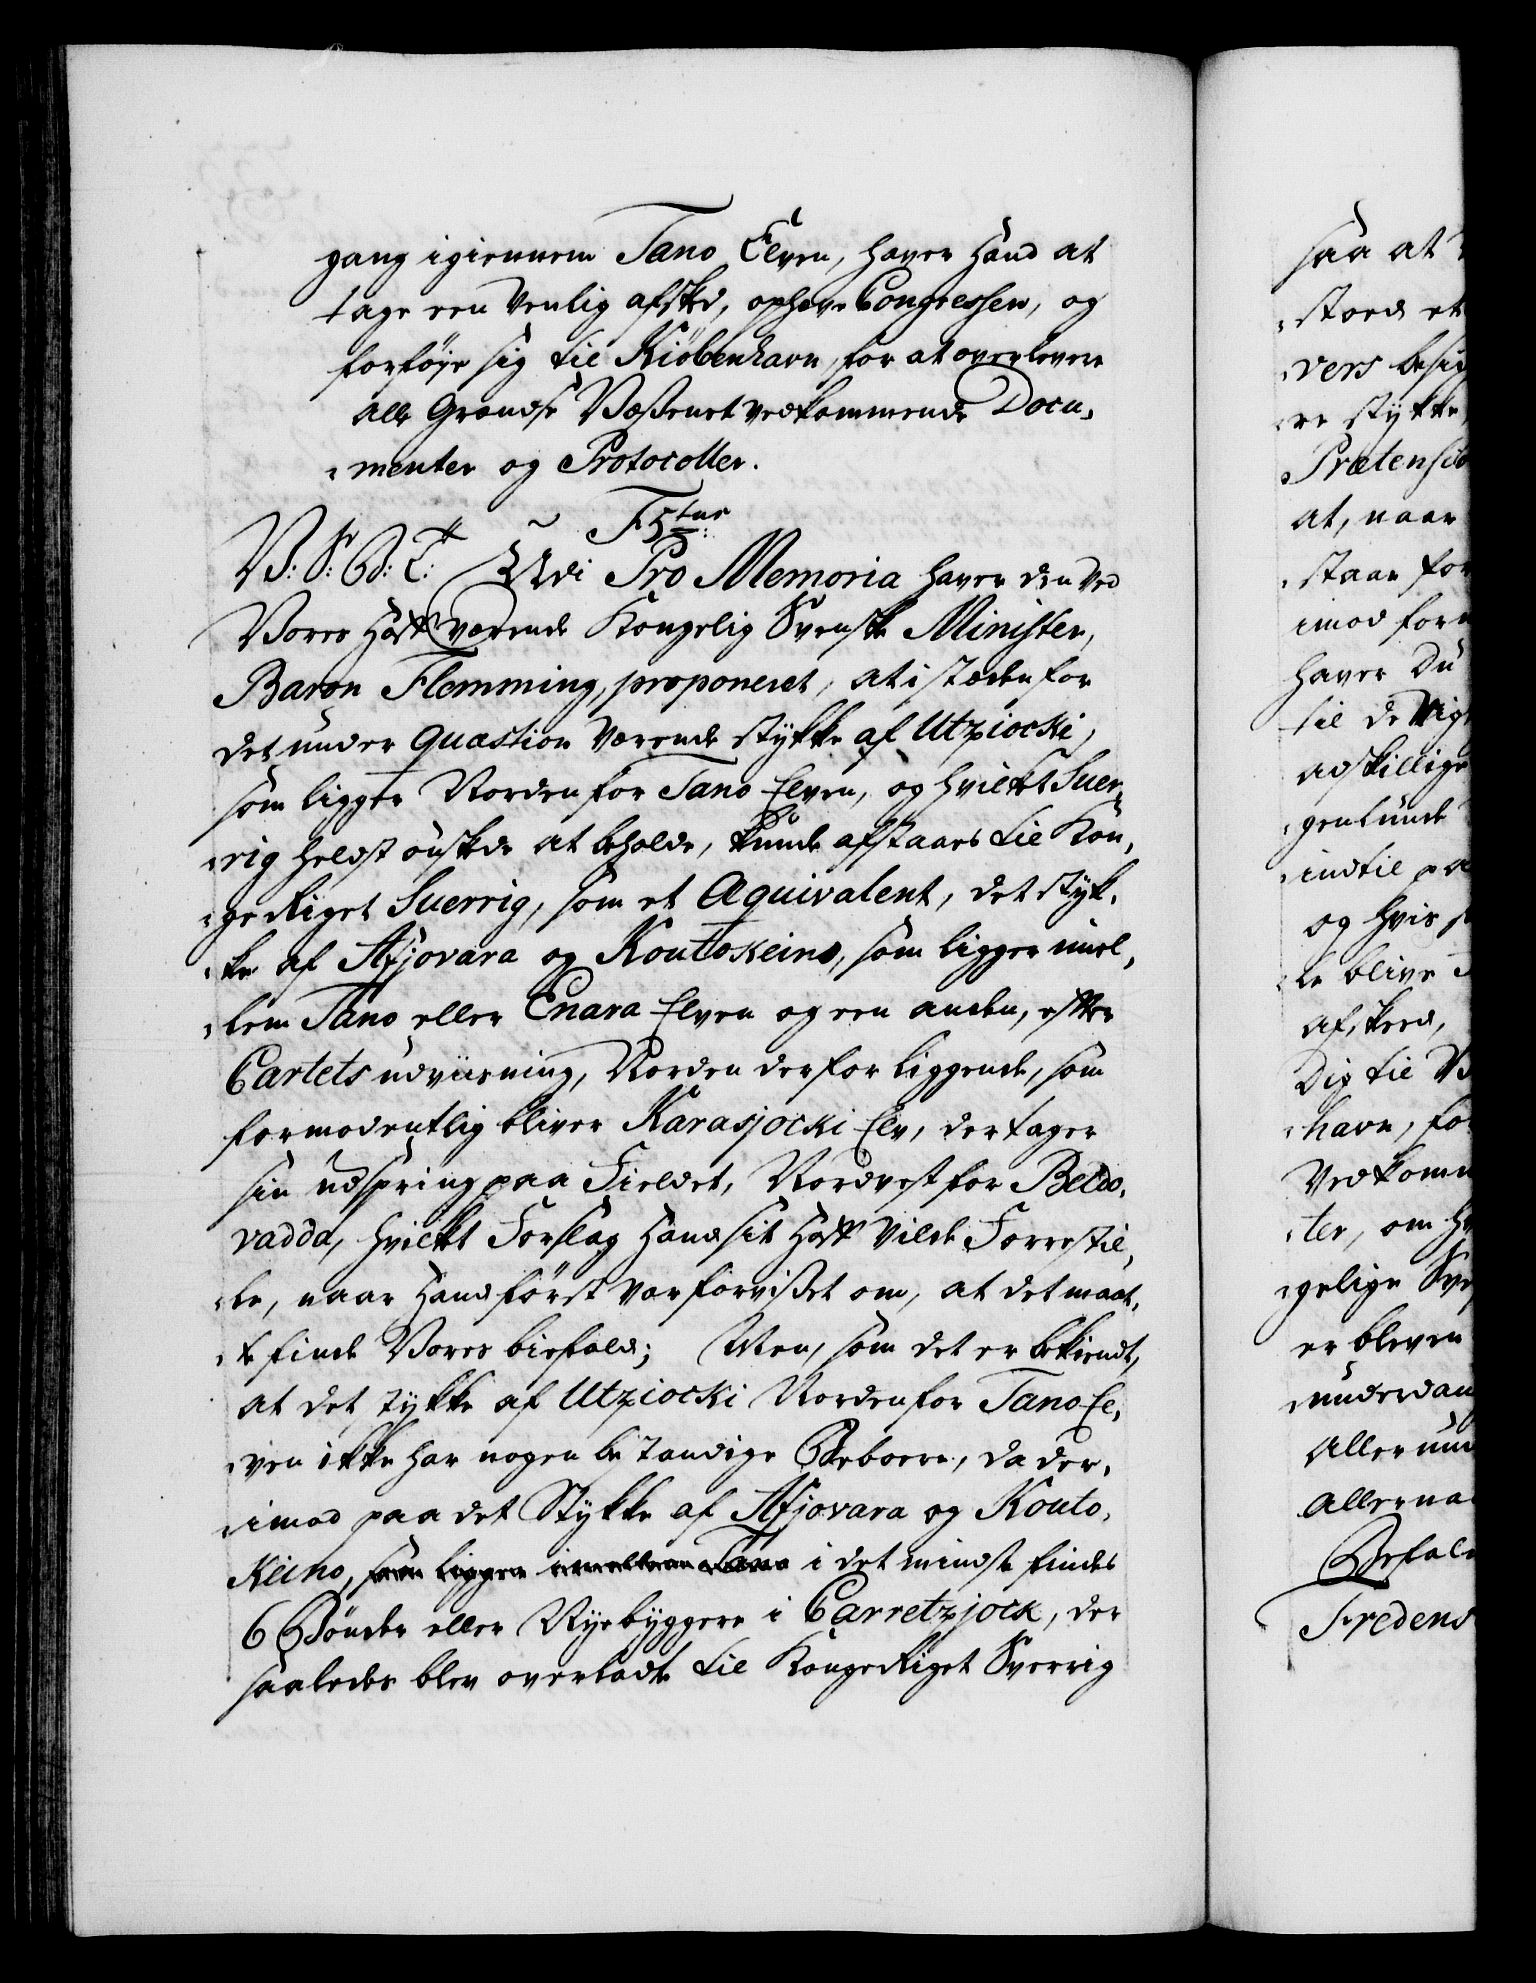 gang igiennem Tano Elven, haver Hand at
tage een Venlig afsked, ophæve Congressen, og
forföje sig til Kiöbenhavn, for at overlevere
alle Grændse Væsenet vedkommende Docu-
menter og Protocoller.
F 5tur
V: S: G: T: Udi Pro Memoria haver den ved
Vores Hoff værende Kongelig Svenske Minister,
Baron Flemming, proponeret, at i stæden for
det under Quæstion værende stykke af Utziocki,
som ligger Norden for Tano Elven, og hvilket Suer-
rig heldst önskede at beholde, kunde afstaaes til Kon-
ge Riget Suerrig, som et Æquivalent, det styk-
ke af Afjovara og Koutokeino, som ligger imel-
lem Tano eller Enara Elven og een anden, efter
Cartets udviisning, Norden derfor liggende, som
formodentlig bliver Karasjocki Elv, der tager
sin udspring paa Fieldet, Nordvest for Beldo-
vadda, hvilket Forslag Hand sit Hoff vilde Forrestil-
le, naar Hand först var forvisset om, at det maat-
te finde Vores biefald; Men, som det er bekiendt,
at det stykke af Utziocki Norden for Tano El-
ven ikke har nogen bestandige Beboere, da der-
imod paa det Stykke af Afjovara og Kouto-
Keino, som ligger imellem Tano i det mindste findes
6 Bönder eller Nyebyggere i Carretzjock, der
saaledes blev overladt til Kongeriget Sverrig
saa at
stoed et
vers besig
re stykke
Prætensio
at, naar
staar for
imod for
haver Du
til de
adskillige
genlunde
indtil pa
og hvis
le blive
afskeed,
Dig til
havn, fo
Vedkomm
ter, om
gelige Sve
er bleven
underdan
Allerund
Allernaa
Befal
Fredens